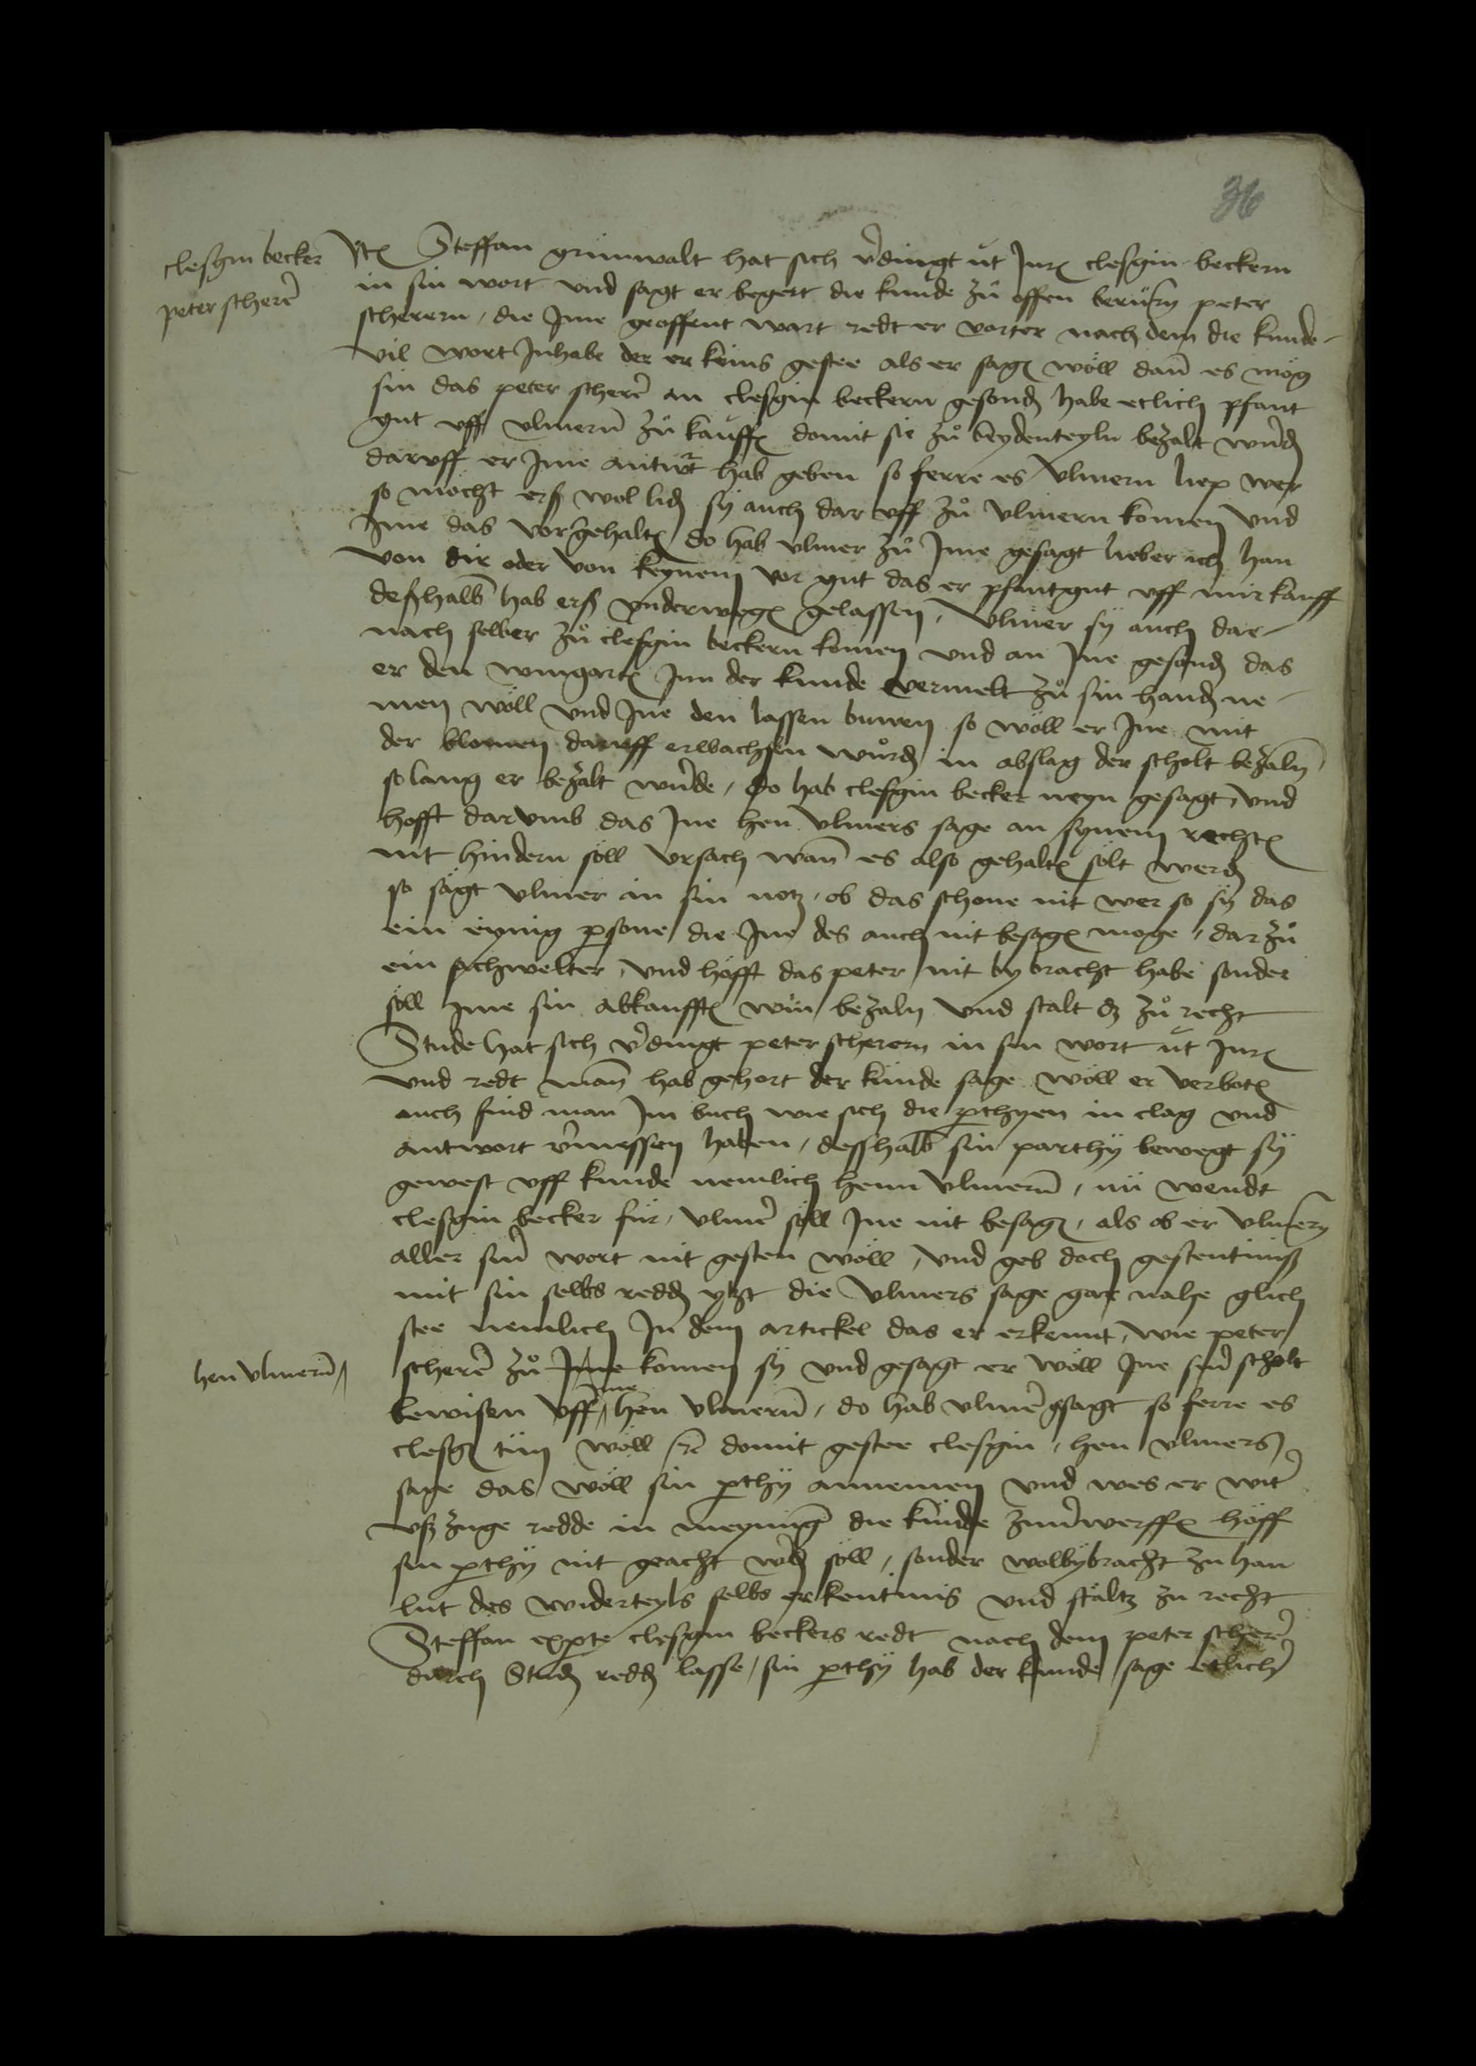 36
clesgin becker
peter scherer̄
Itē Steffan grunwalt hat sich v̄dingt ut Jurē clesgin beckern
in sin wort und sagt er begert die kunde zů offen berurn peter
scherern / die Jme geoffent wart redt er vorter nach dem die kunde
vil wort Jnhabe der er keins gestee als er sagē wöll dan̄ es mög
sin das peter scherer̄ an clesgin beckern gesondē habe etlich pfant
gut uff ulmern̄ zů kauffē domit sie zů beydenteyln bezalt wurdē
daruff er Jme antwort hab geben so ferre es Ulmern liep wer
so mocht erß wol lidē sy auch dar uff zů Ulmern komen und
Jme das vorgehaltē do hab ulmer zů Jme gesagt lieber ich han
von dir oder von keynem vor gut das er pfantgut uff mir kauff
deßhalb hab erß underwegē gelassen / Ulmer sÿ auch dar-
nach selber zů clesgin beckern komen und an Jne gesondē das
er den wingartē Jnn der kunde vermelt zů sin handē ne-
men wöll und Jne den lassen buwen so wöll er Jne mit
der blomen daruff erwachsen wurdē in abslag der scholt bezaln
so lang er bezalt wurde / Do hab clesgin becker neyn gesagt, und
hofft darumb das Jne hen Ulmers sage an synem rechtē
nit hindern söll Ursach wan̄ es also gehaltē solt werdē
so sagt ulmer in sin notz / ob das schone nit wer so sÿ das
ein eynig psone die Jne des auch nit besagē moge / dar zů
ein sachwelter, und höfft das peter nit bybracht habe sonder
söll Jme sin abkaufftē win bezaln und stalt dz zů recht
Stude hat sich v̄dingt peter scherern in sin wort ut Jurē
und redt man̄ hab gehort der kunde sage wöll er verbotē
auch find man Jm buch wie sich die pthyen in clag und
antwort v̄messen haben / desshalb sin parthÿ bewegt sÿ
gewest uff kunde nemlich henn Ulmern̄ / nü wendt
clesgin becker für / ulmer̄ söll Jne nit besagē / als ob er Ulmern
aller sin̄ wort nit gesten wöll / und geb doch gestentniß
mit sin selbs reddē yzt die Ulmers sage gare nahe glich
stee nemlich Jn dem artickel das er erkennt, wie peter
hen ulmern̄
scherer̄ zů Jme komen sÿ und gesagt er wöll Jne sin̄ scholt
bewisen uff ine hen Ulmern̄ / do hab ulmer̄ gsagt so ferre es
clesgē tün wöll rē domit gestee clesgin / hen ulmers
sage das wöll sin pthÿ annemen und wes er wit̄
ußzuge redde in meynūg die kunde zuūwerffē höff
sin pthÿ nit geacht w̄dē söll / sonder wolbÿbracht zu han
lut des widerteyls selbs erkentnis und staltz zu recht
Steffan expte clesgin beckers redt nach dem peter scherer̄
durch Studē reddē lasse / sin pthÿ hab der kunde sage etlich̄